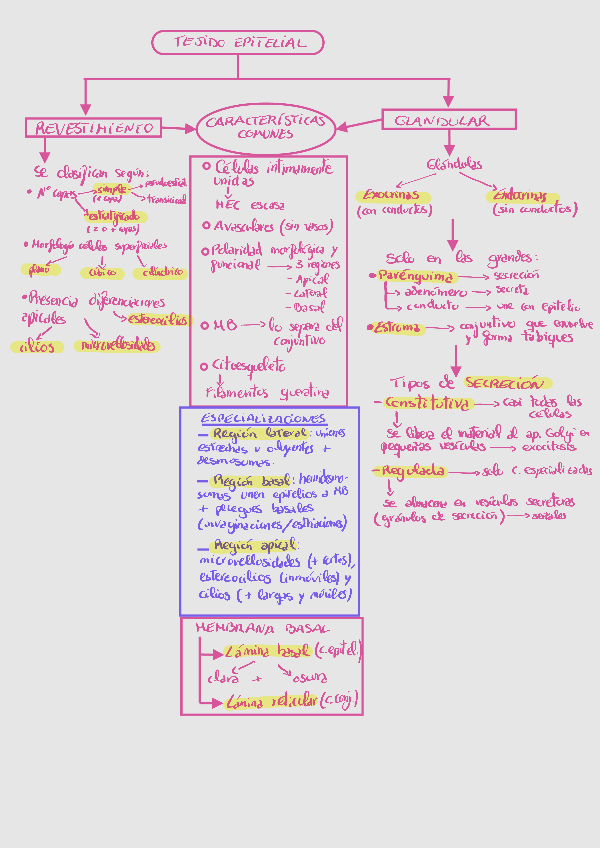 TEJIDO EPITELIAL
REVESTIMIENTO
Se clasifican según:
• Nº capas → simple (1 capa)
→ pseudoestrat.
→ transicional
estratificado
(2 o + capas)
• Morfología células superficiales
plano
cúbico
cilíndrico
• Presencia diferenciaciones
apicales → estereocilios
cilios
microvellosidades
CARACTERÍSTICAS
COMUNES
Células íntimamente
unidas
↓
MEC escasa
Avasculares (sin vasos)
Polaridad morfológica y
funcional → 3 regiones
- Apical
- Lateral
- Basal
MB → lo separa del
conjuntivo
Citoesqueleto
↓
Filamentos queratina
ESPECIALIZACIONES
- Región lateral: uniones
estrechas u ocluyentes +
desmosomas.
- Región basal: hemidesmo-
somas unen epitelios a MB
+ pliegues basales
(invaginaciones/estriaciones)
- Región apical:
microvellosidades (+ cortos),
estereocilios (inmóviles) y
cilios (+ largos y móviles)
MEMBRANA BASAL
→ Lámina basal (c.epitel.)
clara + oscura
→ Lámina reticular (c.conj.)
GLANDULAR
Glándulas
Exocrinas
(con conductos)
Endocrinas
(sin conductos)
Solo en las grandes:
• Parénquima → secreción
→ adenómero → secreta
→ conducto → une con epitelio
• Estroma → conjuntivo que envuelve
y forma tabiques
Tipos de SECRECIÓN
- Constitutiva → casi todas las
células
↓
se libera el material al ap. Golgi en
pequeñas vesículas → exocitosis
- Regulada → solo c. especializadas
↓
se almacena en vesículas secretoras
(gránulos de secreción) → señales